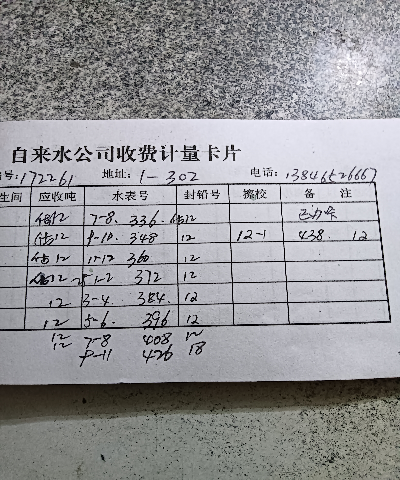 自来水公司收费计量卡片
号:172261 地址: 1-302 电话: 13846526667
生间 应收吨 水表号 封铅号 搅校 备 注
估12 7-8. 336. 估12
估12 9-10. 348 12 12-1 438. 12
估12 11-12 360 12
估12 1-2 372 12
12 3-4. 384. 12
12 5-6. 396 12
12 7-8 408 12
12 9-11 426 18